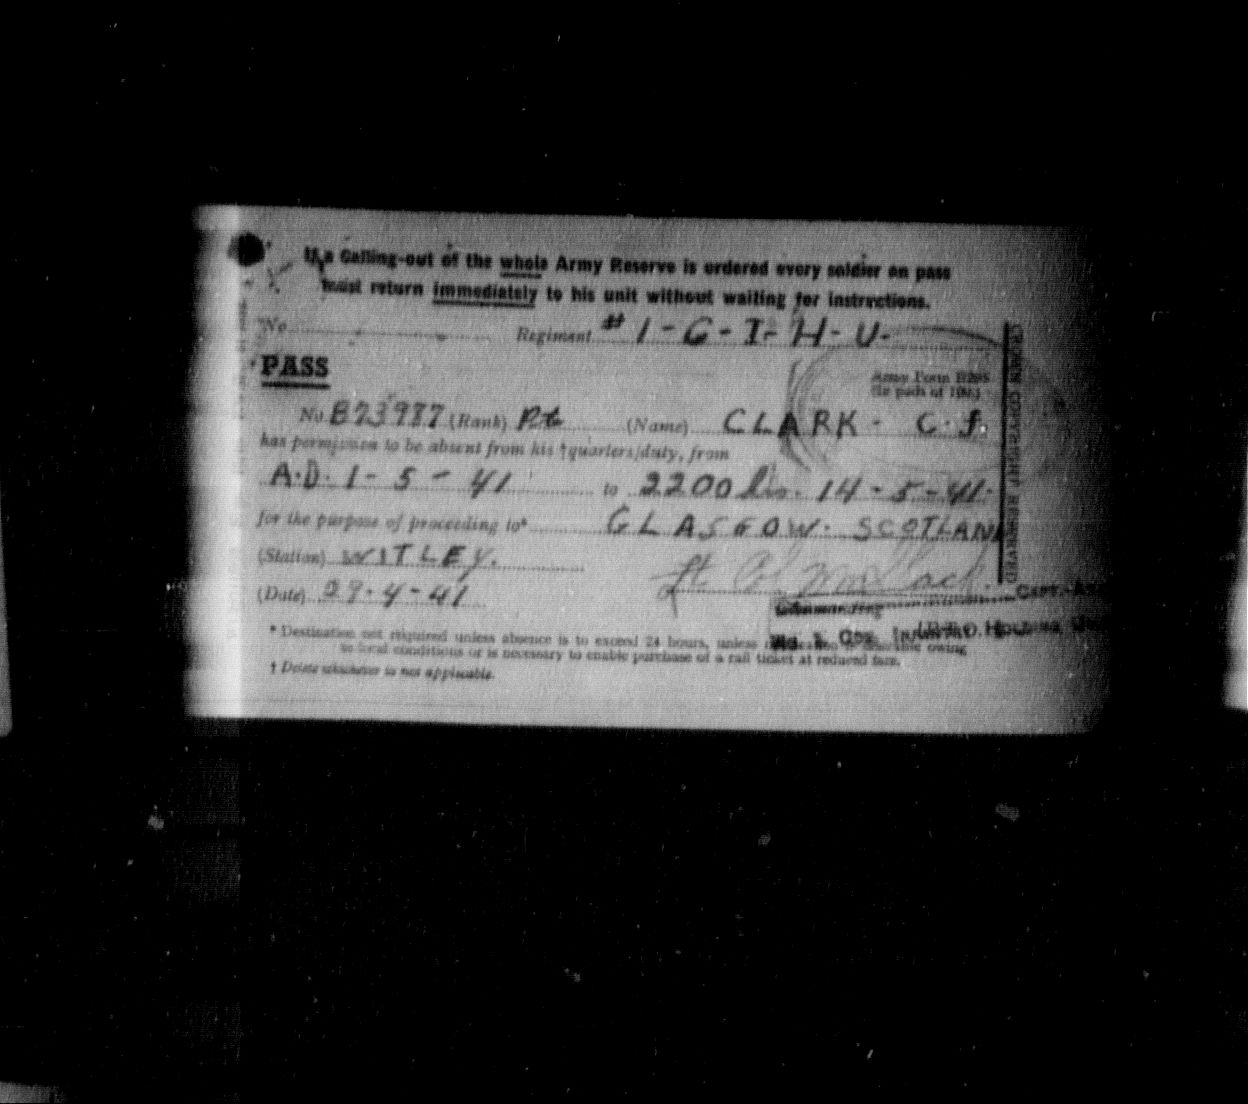 If a Calling-out of the whole Army Reserve is ordered every soldier on pass
must return immediately to his unit without waiting for instructions.
No. Regiment # 1-G-I-H-U.
PASS
Army Form B295
No. B73987 (Rank) Pte (Name) CLARK - C. J.
has permission to be absent from his †quarters/duty, from
A.D. 1-5-41 to 2200 hrs. 14-5-41.
for the purpose of proceeding to* GLASGOW. SCOTLAND
(Station) WITLEY.
(Date) 29-4-41
Lt Col
Commanding
CAPT.
* Destination not required unless absence is to exceed 24 hours, unless owing
to local conditions it is necessary to enable purchase of a rail ticket at reduced fare.
† Delete whichever is not applicable.
CROWN COPYRIGHT RESERVED